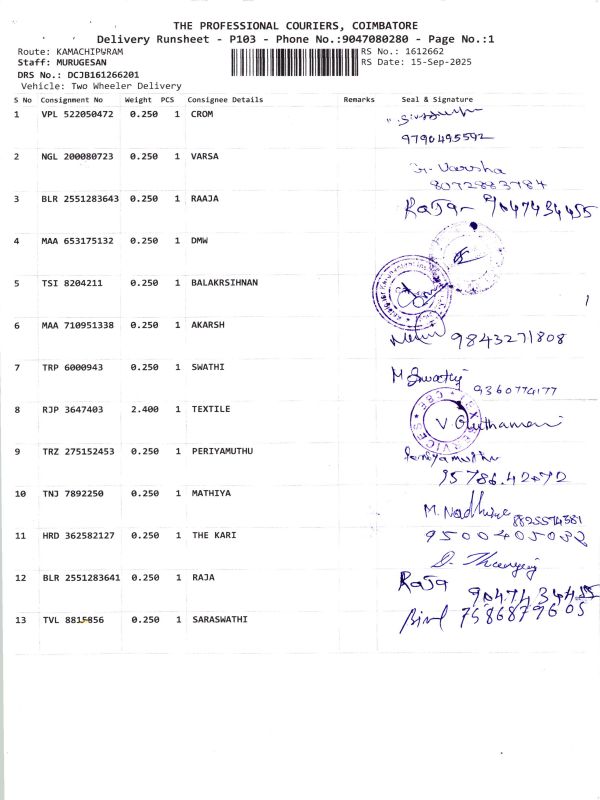 THE PROFESSIONAL COURIERS, COIMBATORE
Delivery Runsheet - P103 - Phone No.:9047080280 - Page No.:1
Route: KAMACHIPURAM RS No.: 1612662
Staff: MURUGESAN RS Date: 15-Sep-2025
DRS No.: DCJB161266201
Vehicle: Two Wheeler Delivery
S No Consignment No Weight PCS Consignee Details Remarks Seal & Signature
1 VPL 522050472 0.250 1 CROM
9790495592
2 NGL 200080723 0.250 1 VARSA
Varsha
8072883784
3 BLR 2551283643 0.250 1 RAAJA RaJa 9047434455
4 MAA 653175132 0.250 1 DMW
5 TSI 8204211 0.250 1 BALAKRSIHNAN
6 MAA 710951338 0.250 1 AKARSH
9843271808
7 TRP 6000943 0.250 1 SWATHI M Swathi
9360774177
8 RJP 3647403 2.400 1 TEXTILE
SERVICES CBE
9 TRZ 275152453 0.250 1 PERIYAMUTHU Periyamuthu
95786.42092
10 TNJ 7892250 0.250 1 MATHIYA M. Nadhiya
8825574381
11 HRD 362582127 0.250 1 THE KARI 9500405032
12 BLR 2551283641 0.250 1 RAJA RaJa 9047434455
13 TVL 8815856 0.250 1 SARASWATHI 7586879605